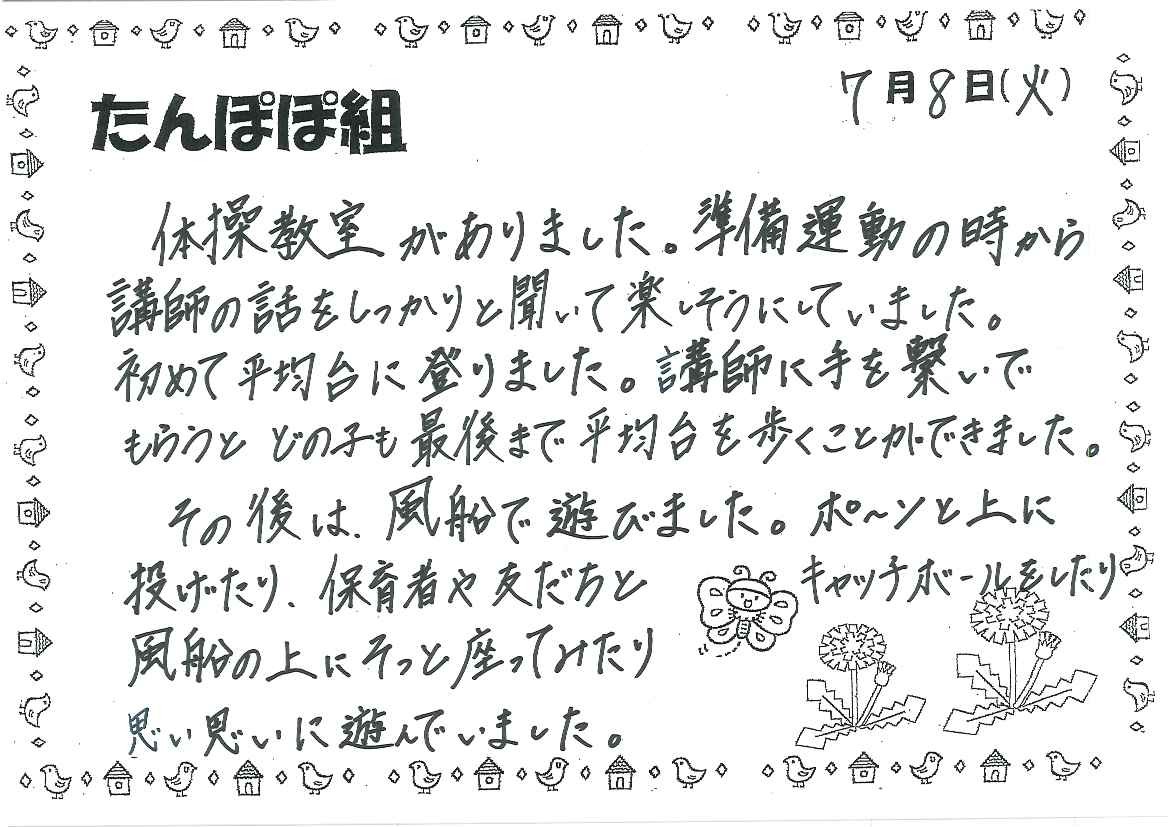 たんぽぽ組
7月8日(火)
体操教室がありました。準備運動の時から
講師の話をしっかりと聞いて楽しそうにしていました。
初めて平均台に登りました。講師に手を繋いで
もらうと どの子も最後まで平均台を歩くことができました。
その後は、風船で遊びました。ポ～ンと上に
投げたり、保育者や友だちと キャッチボールをしたり
風船の上にそっと座ってみたり
思い思いに遊んでいました。